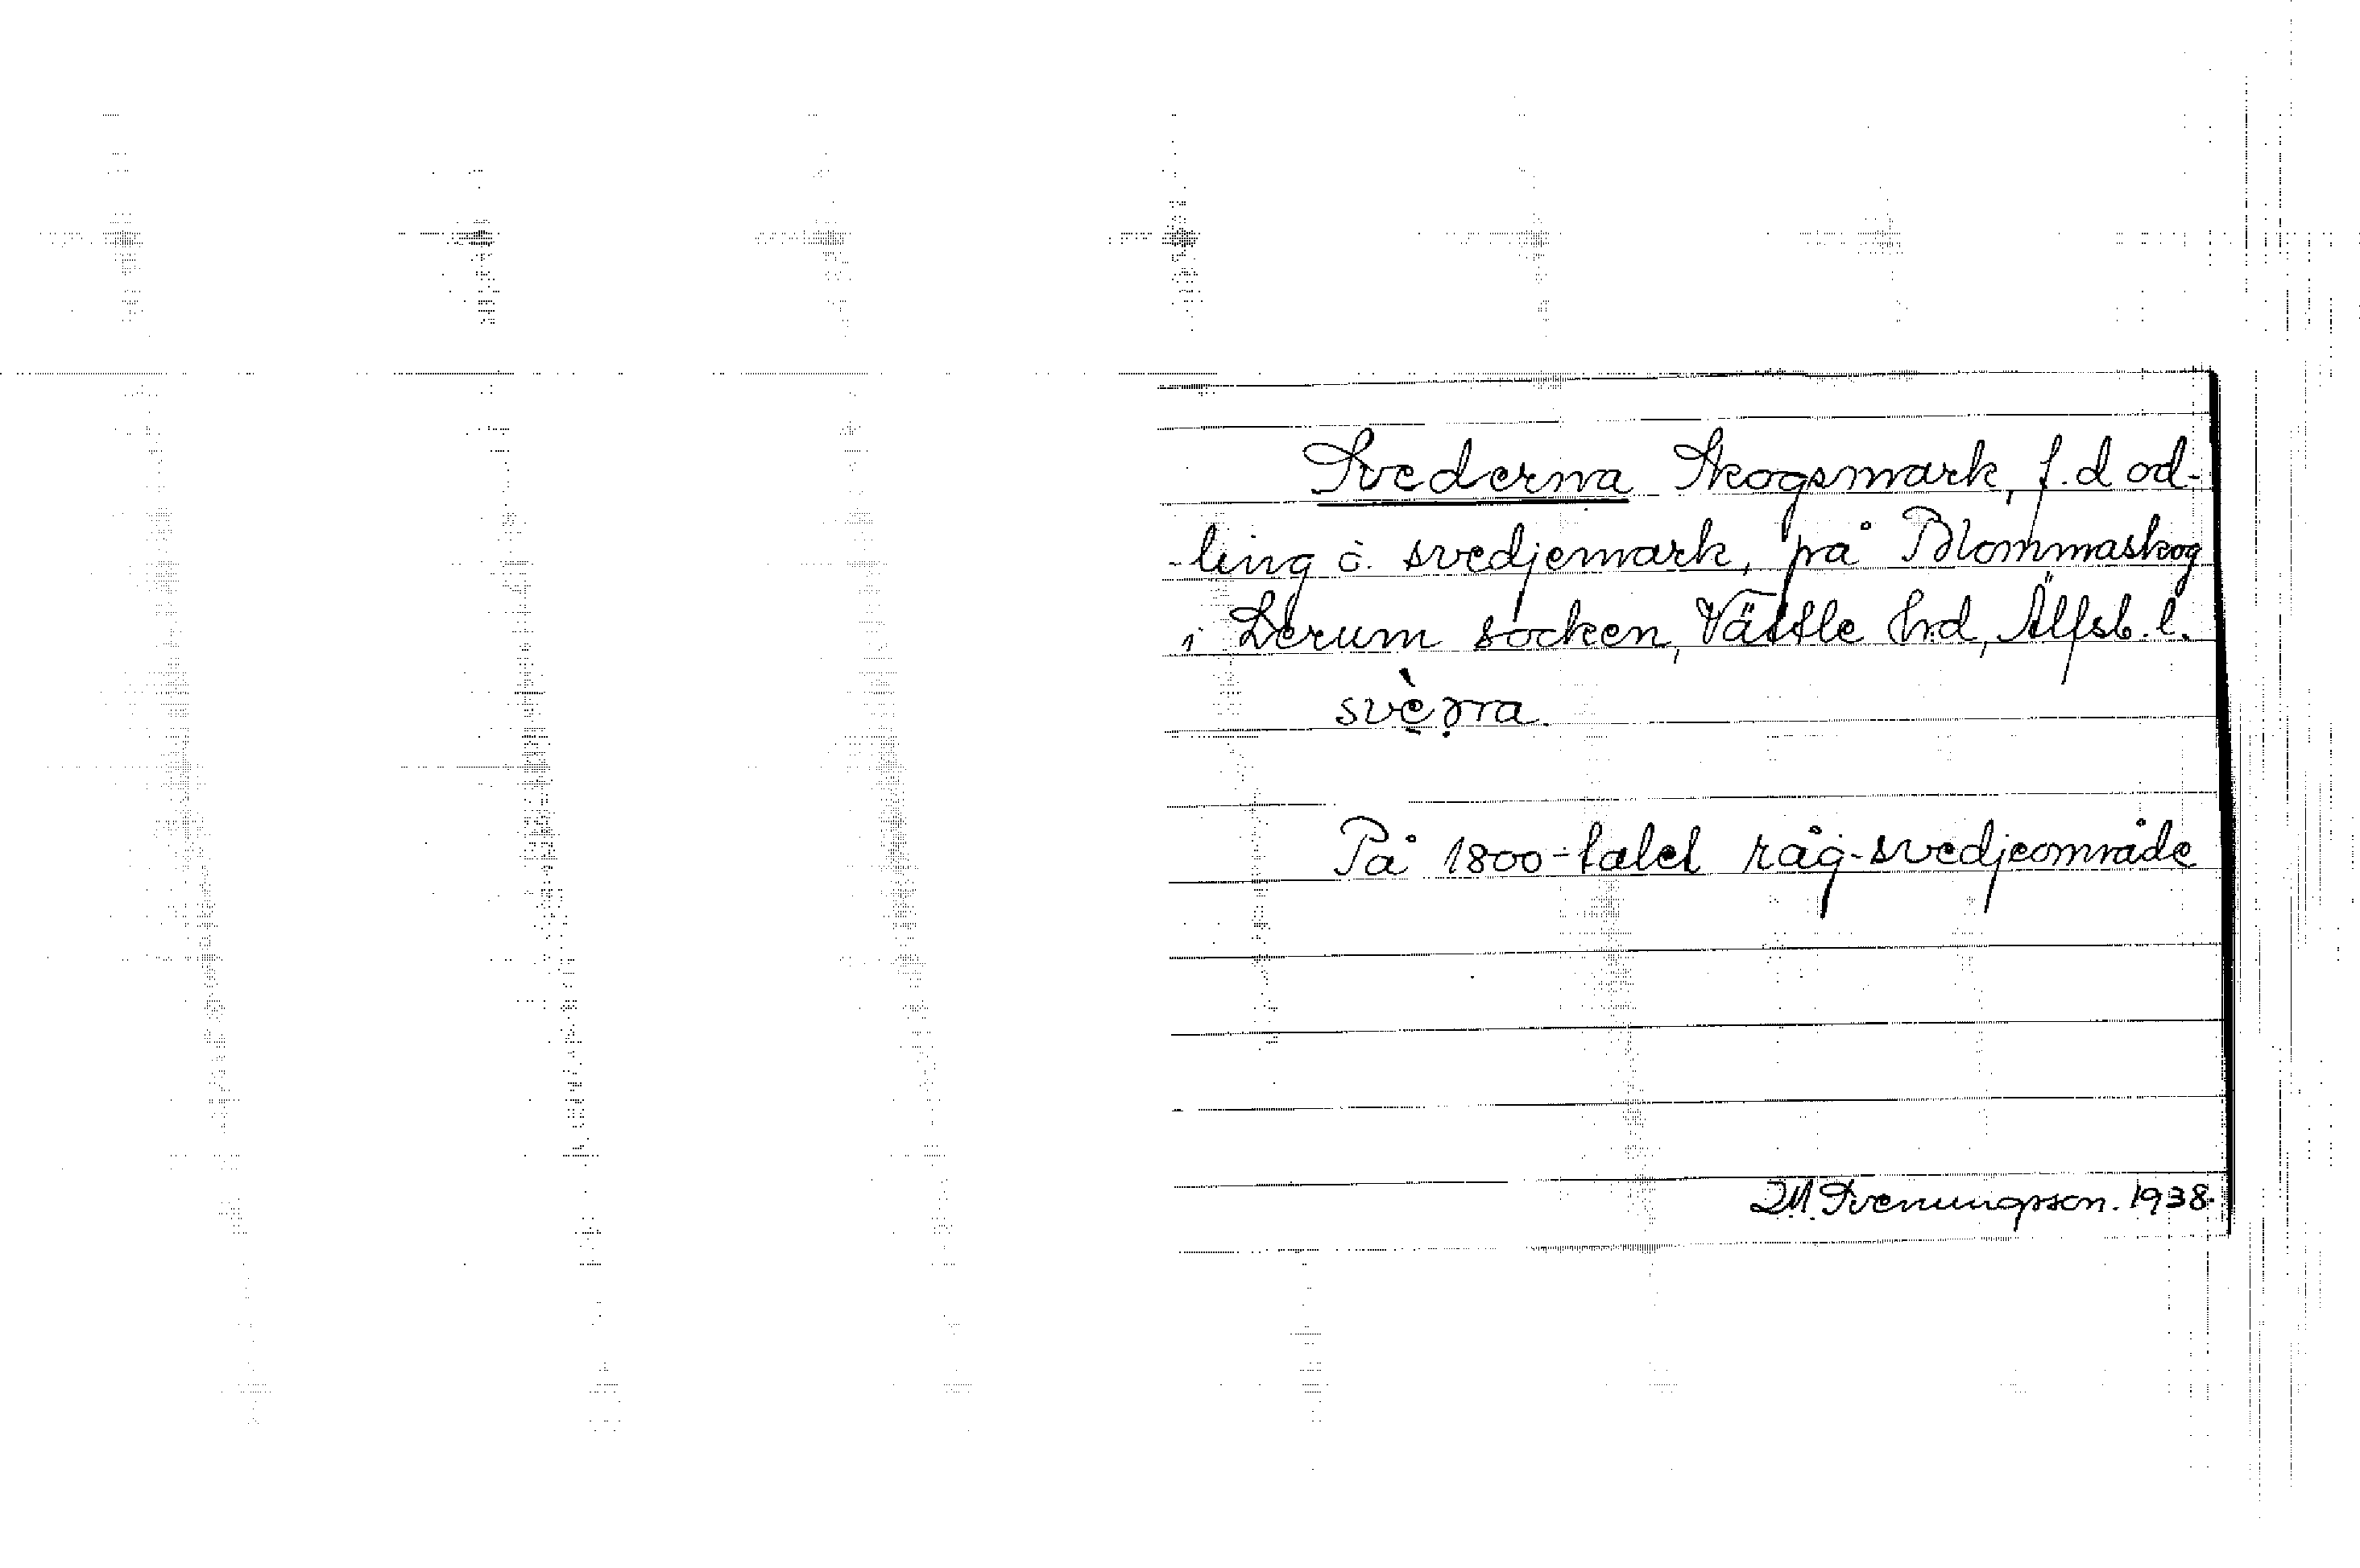 Svederna Skogsmark, f.d od-
-ling o. svedjemark, på Blommaskog
i Lerum socken, Vättle hrd, Älfsb. l.
På 1800-talet råg-svedjeområde
D.M. Svenungsson. 1938.